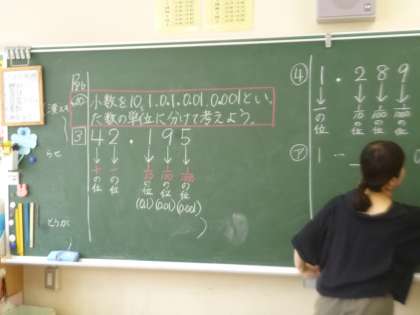 小数を10、1、0.1、0.01、0.001といっ
た数の単位に分けて考えよう。
③ 42.195
十の位 一の位 1/10の位 1/100の位 1/1000の位
(0.1) (0.01) (0.001)
④ 1.289
一の位 1/10の位 1/100の位 1/1000の位
㋐ 1